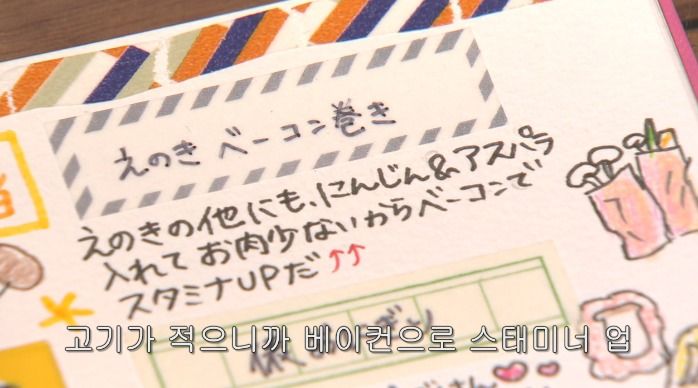 えのき ベーコン巻き
えのきの他にも、にんじん&アスパラ
入れて お肉少ないからベーコンで
スタミナUPだ↑↑
고기가 적으니까 베이컨으로 스태미너 업